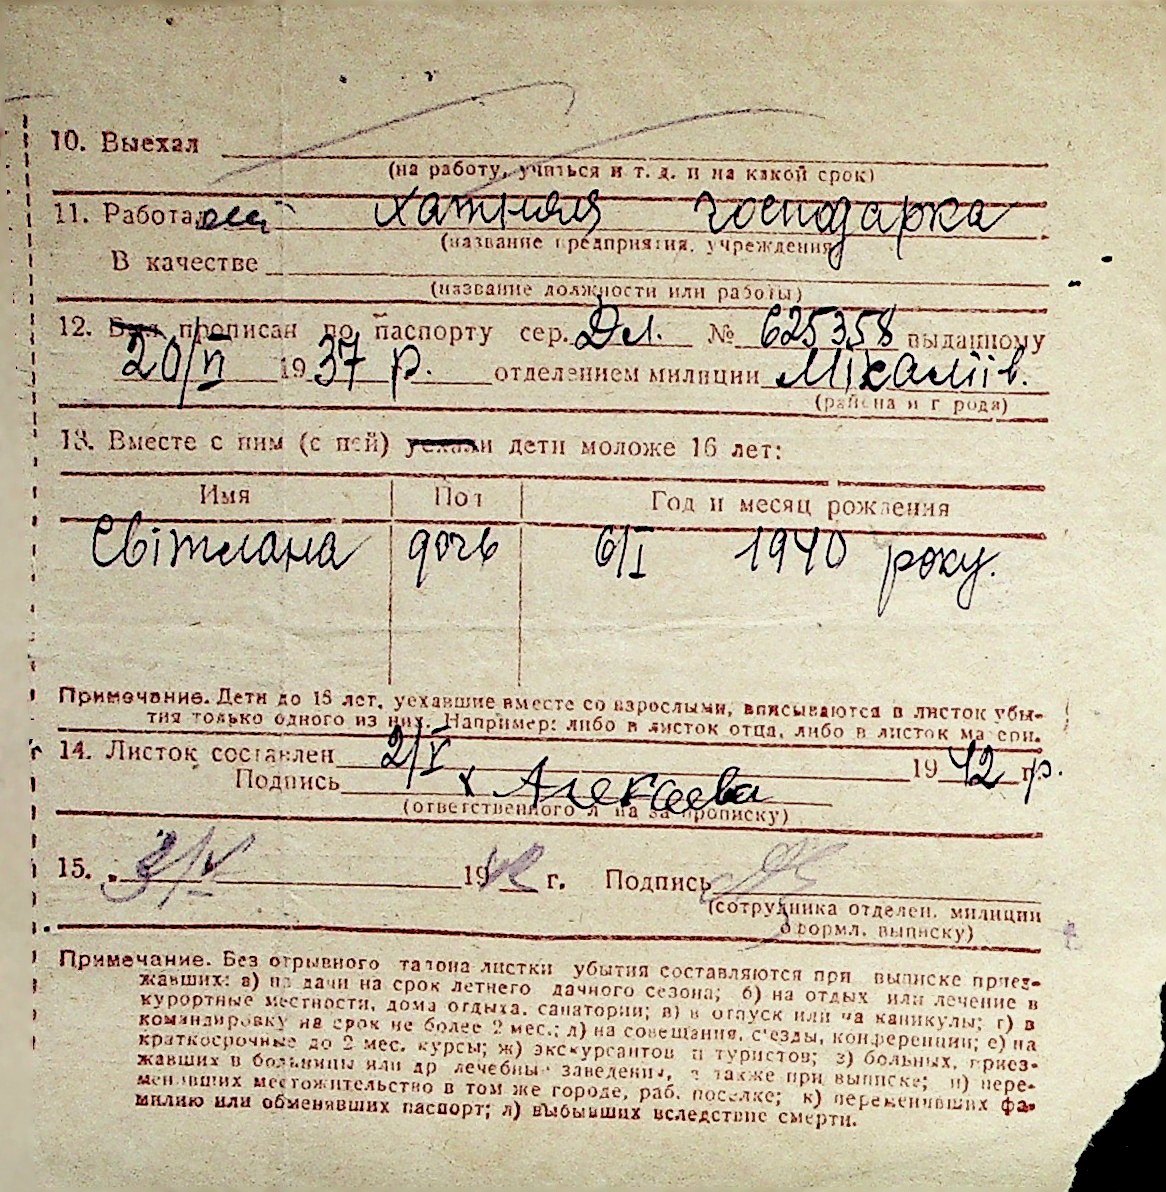 10. Выехал
(на работу, учиться и т. д. и на какой срок)
11. Работа хатняя господарка
(название предприятия, учреждения
В качестве
(название должности или работы)
12. Был прописан по паспорту сер. Дл. № 625358 выданному
20/VI 1937 р. отделением милиции Мікаліїв.
(района и города)
13. Вместе с ним (с ней) уехали дети моложе 16 лет:
Имя Пол Год и месяц рождения
Світлана дочь 6/I 1940 року.
Примечание. Дети до 16 лет, уехавшие вместе со взрослыми, вписываются в листок убы-
тия только одного из них. Например: либо в листок отца, либо в листок матери.
14. Листок составлен 2/V 1942 г. р.
Подпись х Алексеева
(ответственного лица за прописку)
15. 3/V 1942 г. Подпись
(сотрудника отделен. милиции
оформл. выписку)
Примечание. Без отрывного талона листки убытия составляются при выписке приез-
жавших: а) на дачи на срок летнего дачного сезона; б) на отдых или лечение в
курортные местности, дома отдыха, санатории; в) в отпуск или на каникулы; г) в
командировку на срок не более 2 мес.; д) на совещания, съезды, конференции; е) на
краткосрочные до 2 мес. курсы; ж) экскурсантов и туристов; з) больных, приез-
жавших в больницы или др лечебные заведения, а также при выписке; и) пере-
менивших местожительство в том же городе, раб. поселке; к) переменивших фа-
милию или обменявших паспорт; л) выбывших вследствие смерти.